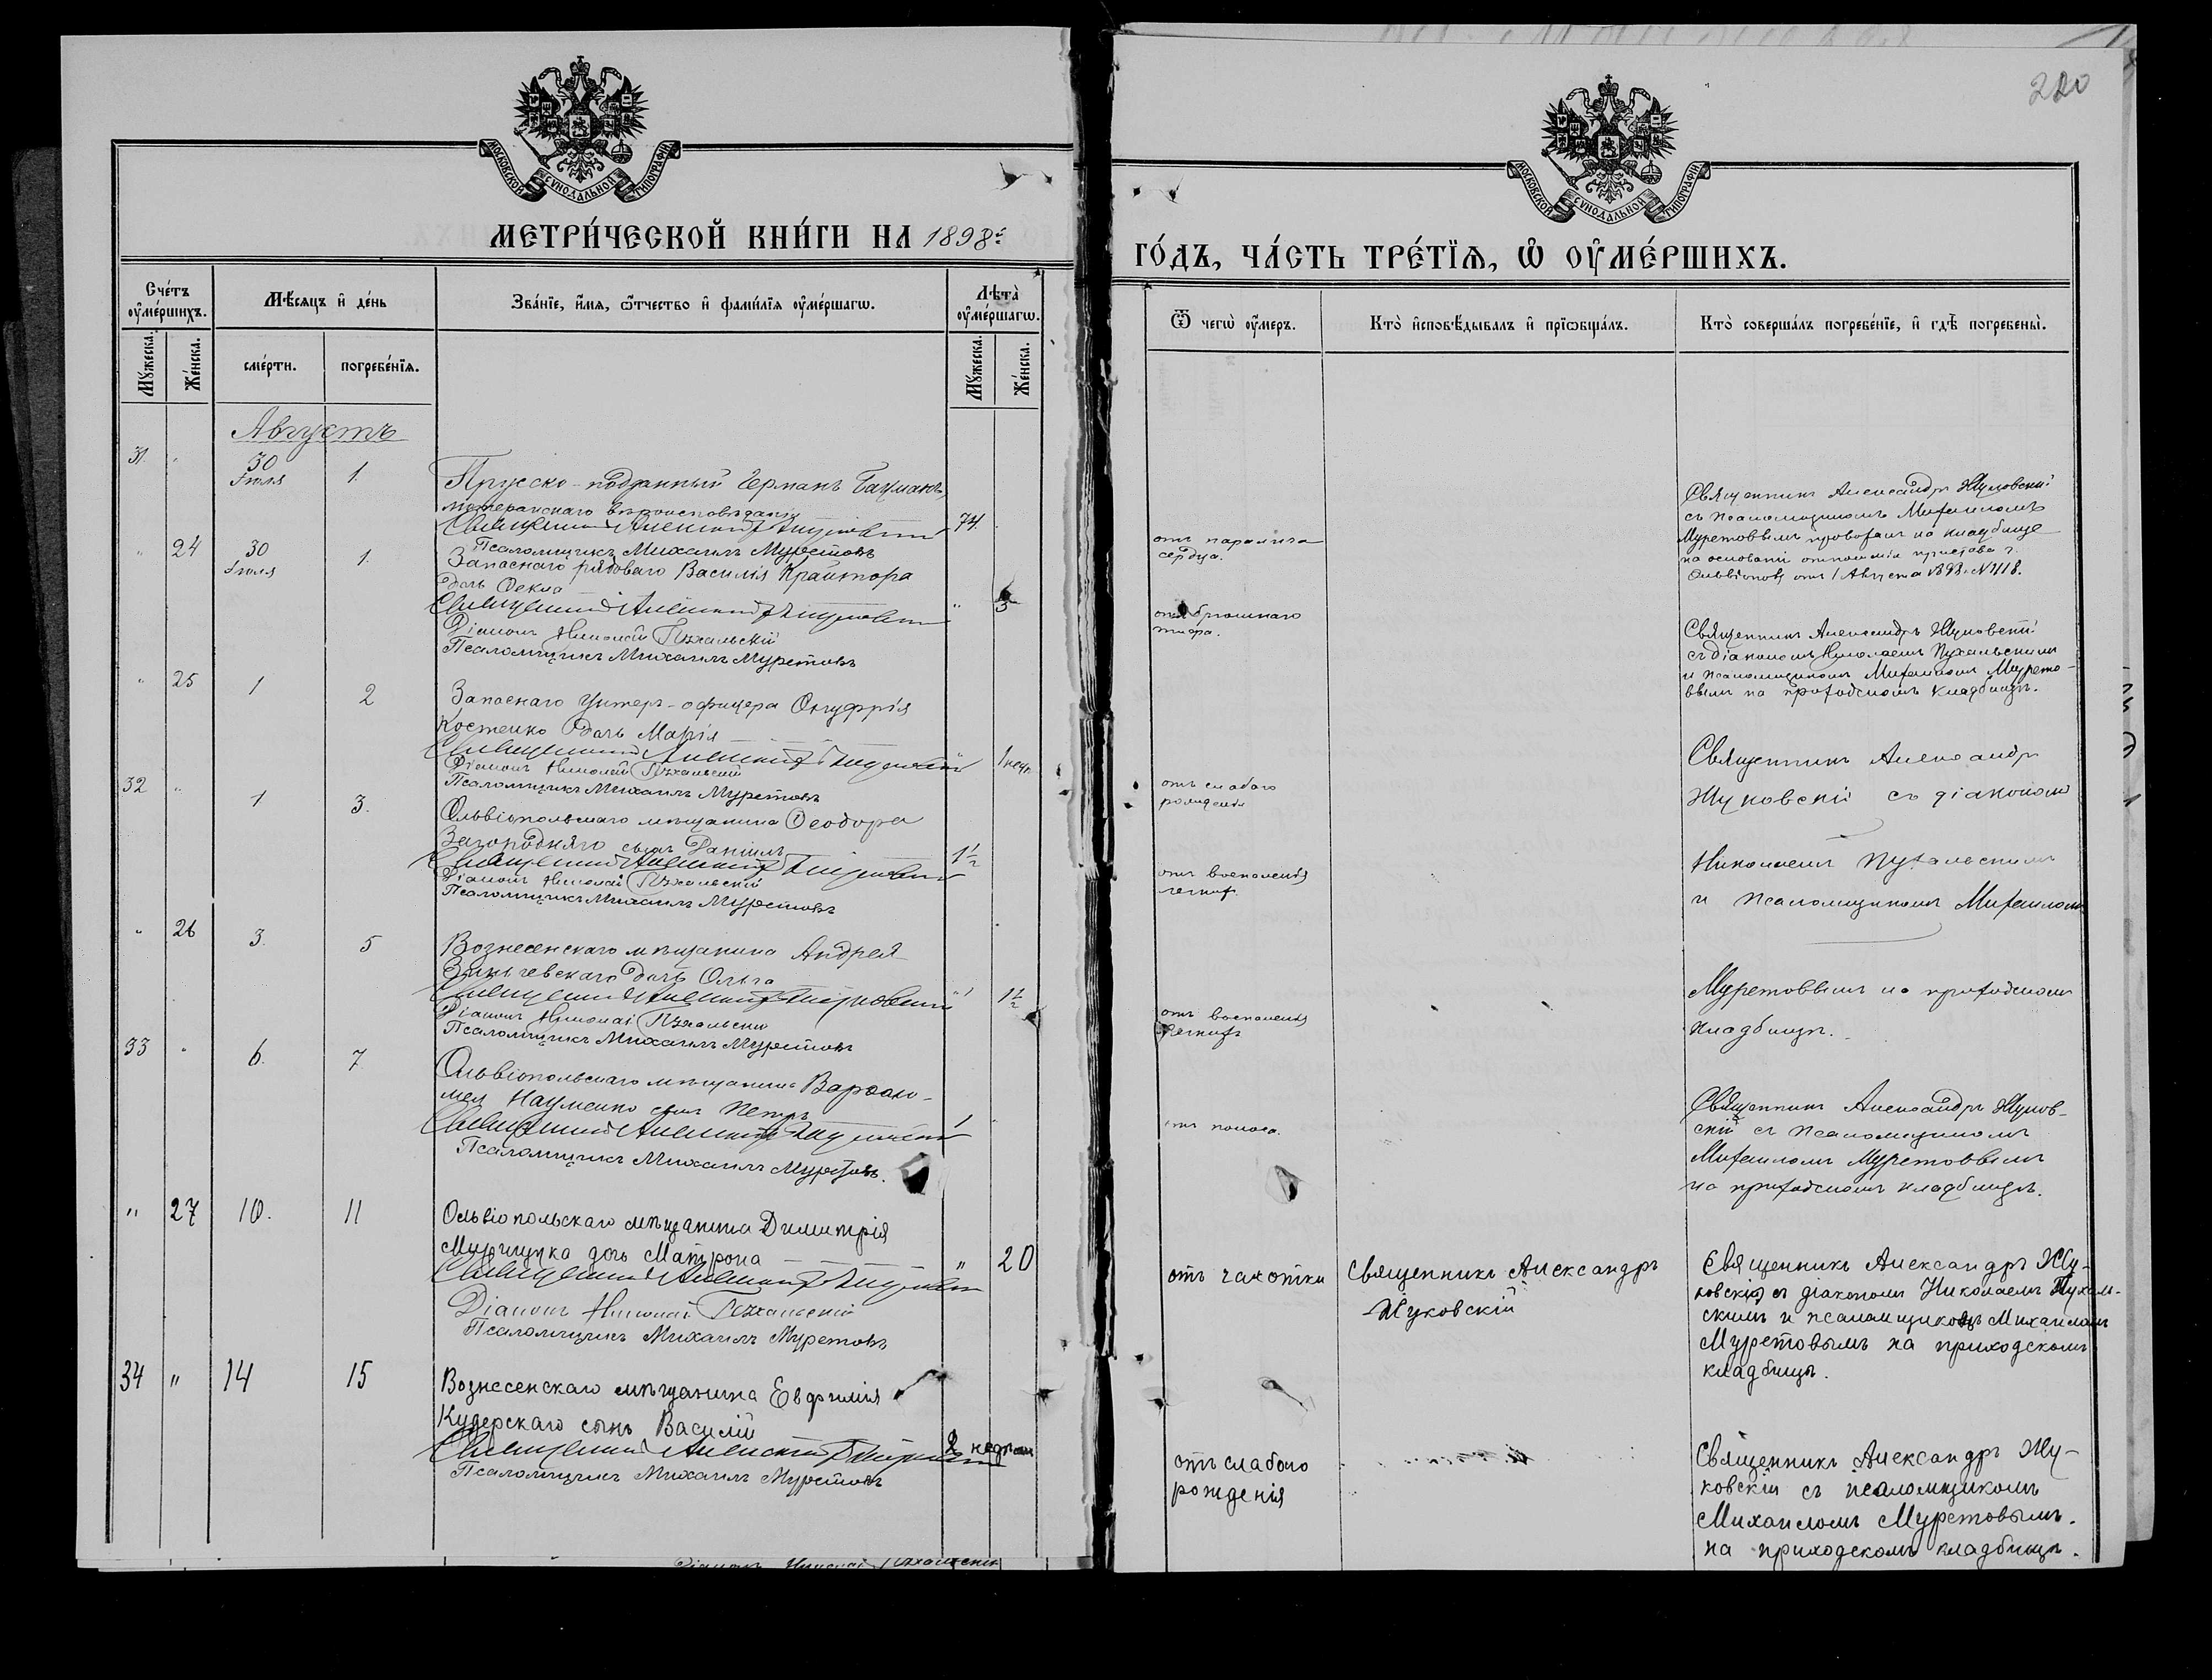 220
МОСКОВСКОЙ СѴНОДАЛЬНОЙ ТИПОГРАФІИ
МОСКОВСКОЙ СѴНОДАЛЬНОЙ ТИПОГРАФІИ
МЕТРИ́ЧЕСКОЙ КНИ́ГИ НА 1898 г.
ГО́ДЪ, ЧА́СТЬ ТРЕ́ТІѦ, Ѡ ОУ҆МЕ́РШИХЪ.
Сче́тъ оу҆ме́ршихъ.
Мѣ́сяцъ и҆ де́нь
Зва́нїе, и҆́мя, ѻ҆́тчество и҆ фами́лїя оу҆ме́ршагѡ.
Лѣта̀ оу҆ме́ршагѡ.
Ѿ чегѡ̀ оу҆́меръ.
Кто̀ и҆сповѣ́дывалъ и҆ прїѡбща́лъ.
Кто̀ соверша́лъ погребе́нїе, и҆ гдѣ̀ погребены̀.
Му́жеска. Же́нска.
сме́рти. погребе́нїя.
Му́жеска. Же́нска.
Августъ
31. " 30 Іюля 1.
Прусско-подданный Германъ Бауманъ,
лютеранскаго вѣроисповѣданія
74.
Священникъ Александръ Жуковскій
Псаломщикъ Михаилъ Муретовъ
отъ паралича
сердца.
Священникъ Александръ Жуковскій
съ псаломщикомъ Михаиломъ
Муретовымъ провожалъ на кладбище
на основаніи отношенія пристава г.
Ольвіополя отъ 1 Августа 1898 г. № 4118.
" 24 30 Іюля 1.
Запаснаго рядоваго Василія Крайтора
дочь Ѳекла
" 3
Священникъ Александръ Жуковскій
Діаконъ Николай Пухальскій
Псаломщикъ Михаилъ Муретовъ
отъ брюшнаго
тифа.
Священникъ Александръ Жуковскій
съ діакономъ Николаемъ Пухальскимъ
и псаломщикомъ Михаиломъ Мурето-
вымъ на приходскомъ кладбищѣ.
" 25 1 2
Запаснаго Унтеръ-офицера Онуфрія
Костенко дочь Марія
" 1 нед.
Священникъ Александръ Жуковскій
Діаконъ Николай Пухальскій
Псаломщикъ Михаилъ Муретовъ
отъ слабаго
рожденія
Священникъ Александръ
Жуковскій съ діакономъ
Николаемъ Пухальскимъ
и псаломщикомъ Михаиломъ
Муретовымъ на приходскомъ
кладбищѣ.
32 " 1 3.
Ольвіопольскаго мѣщанина Ѳеодора
Загородняго сынъ Даніилъ
1½
Священникъ Александръ Жуковскій
Діаконъ Николай Пухальскій
Псаломщикъ Михаилъ Муретовъ
отъ воспаленія
легкихъ
" 26 3. 5
Вознесенскаго мѣщанина Андрея
дочь Ольга
" 1½
Священникъ Александръ Жуковскій
Діаконъ Николай Пухальскій
Псаломщикъ Михаилъ Муретовъ
отъ воспаленія
легкихъ
33 " 6. 7
Ольвіопольскаго мѣщанина Варѳоло-
мея Науменко сынъ Петръ
1
Священникъ Александръ Жуковскій
Псаломщикъ Михаилъ Муретовъ.
отъ поноса.
Священникъ Александръ Жуков-
скій съ псаломщикомъ
Михаиломъ Муретовымъ
на приходскомъ кладбищѣ.
" 27 10. 11
Ольвіопольскаго мѣщанина Димитрія
дочь Матрона
" 20
Священникъ Александръ Жуковскій
Діаконъ Николай Пухальскій
Псаломщикъ Михаилъ Муретовъ
отъ чахотки
Священникъ Александръ
Жуковскій
Священникъ Александръ Жу-
ковскій съ діакономъ Николаемъ Пухаль-
скимъ и псаломщикомъ Михаиломъ
Муретовымъ на приходскомъ
кладбищѣ.
34 " 14 15
Вознесенскаго мѣщанина Евфимія
Кудерскаго сынъ Василій
2 недѣли
Священникъ Александръ Жуковскій
Псаломщикъ Михаилъ Муретовъ
отъ слабого
рожденія
Священникъ Александръ Жу-
ковскій съ псаломщикомъ
Михаиломъ Муретовымъ.
на приходскомъ кладбищѣ.
Діаконъ Николай Пухальскій